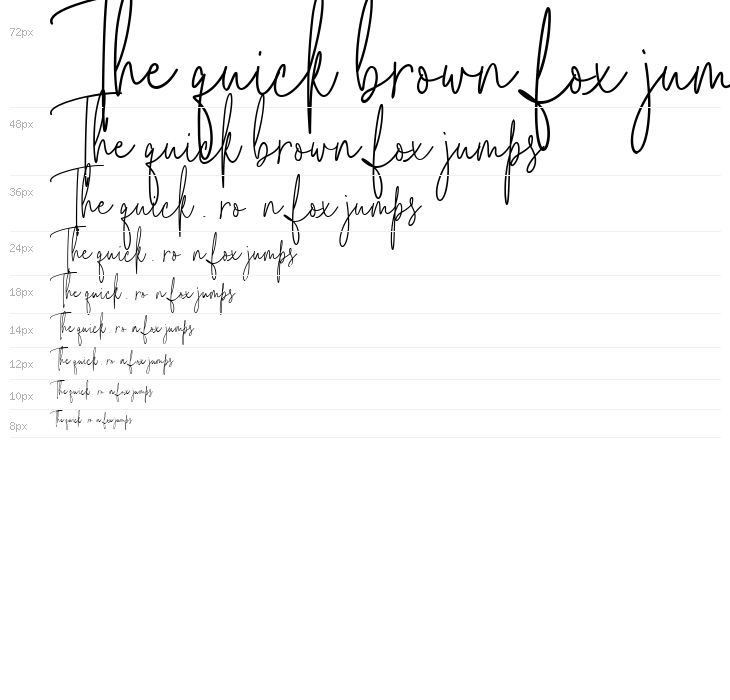 72px The quick brown fox jum
48px The quick brown fox jumps
36px The quick . ro n fox jumps
24px The quick . ro n fox jumps
18px The quick . ro n fox jumps
14px The quick . ro n fox jumps
12px The quick . ro n fox jumps
10px The quick . ro n fox jumps
8px The quick . ro n fox jumps